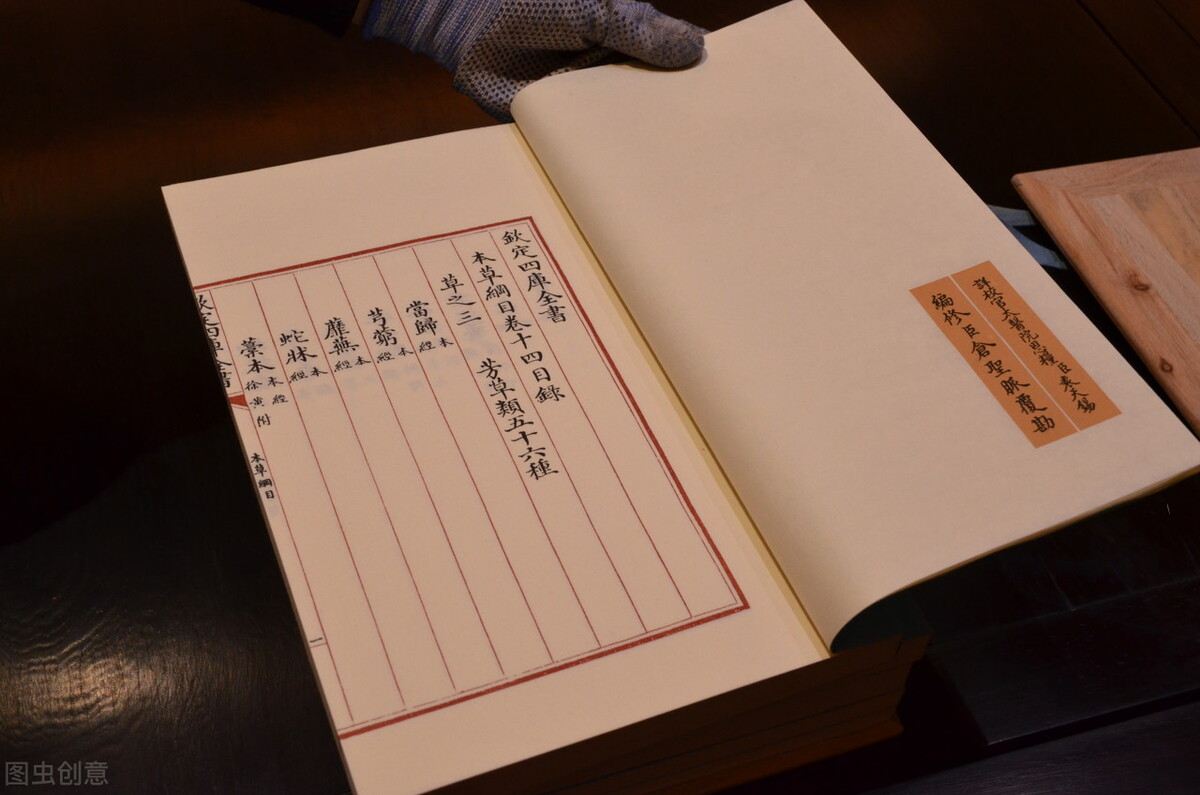 詳校官太醫院恩糧臣袁天錫
編修臣倉聖脈覆勘
欽定四庫全書
本草綱目卷十四目錄
草之三 芳草類五十六種
當歸本經
芎藭本經
蘼蕪本經
蛇牀本經
藁本本經 徐黄附
欽定四庫全書
本草綱目
一
图虫创意